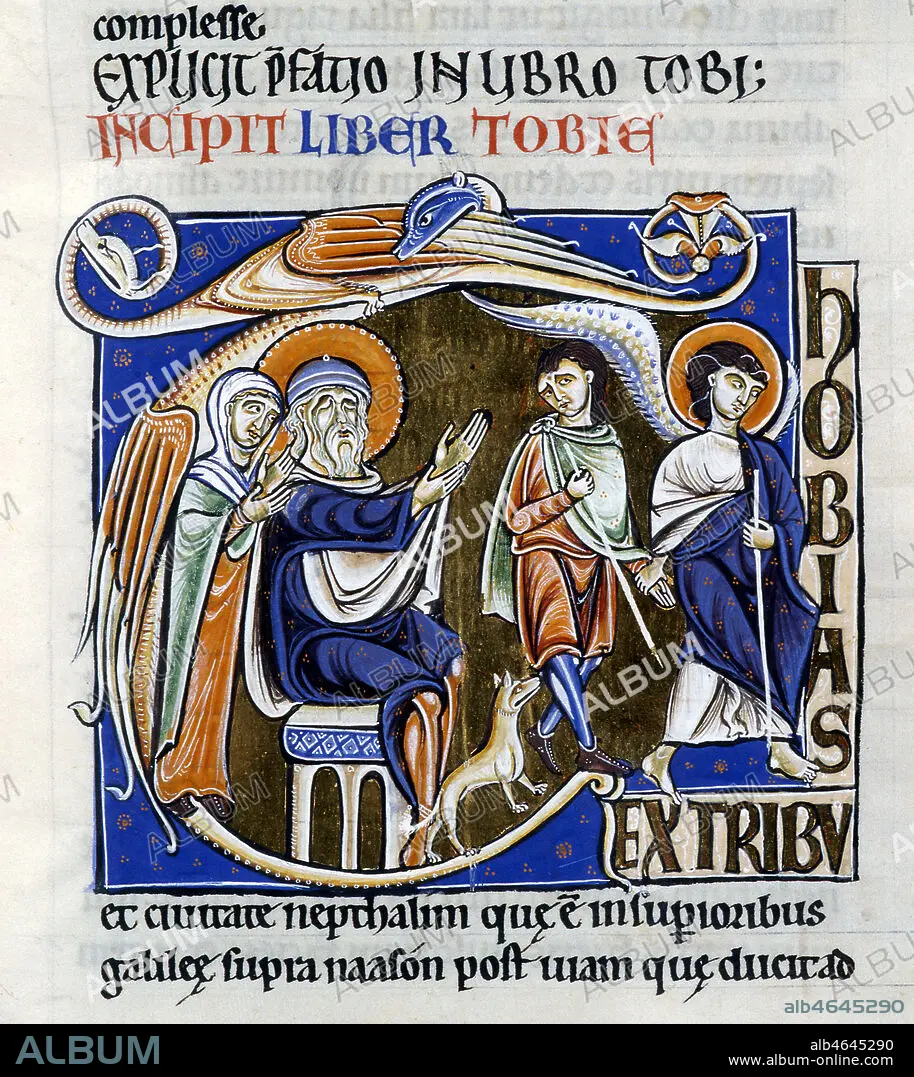 complesse
EXPLICIT P̄FATIO IN LIBRO TOBI;
INCIPIT LIBER TOBIE
HOBIAS
EX TRIBV
et ciuitate nepthalim quę ē in supioribus
galileę supra naason post uiam quę ducit ad
ALBUM
alb4645290
ALBUM
alb4645290
www.album-online.com